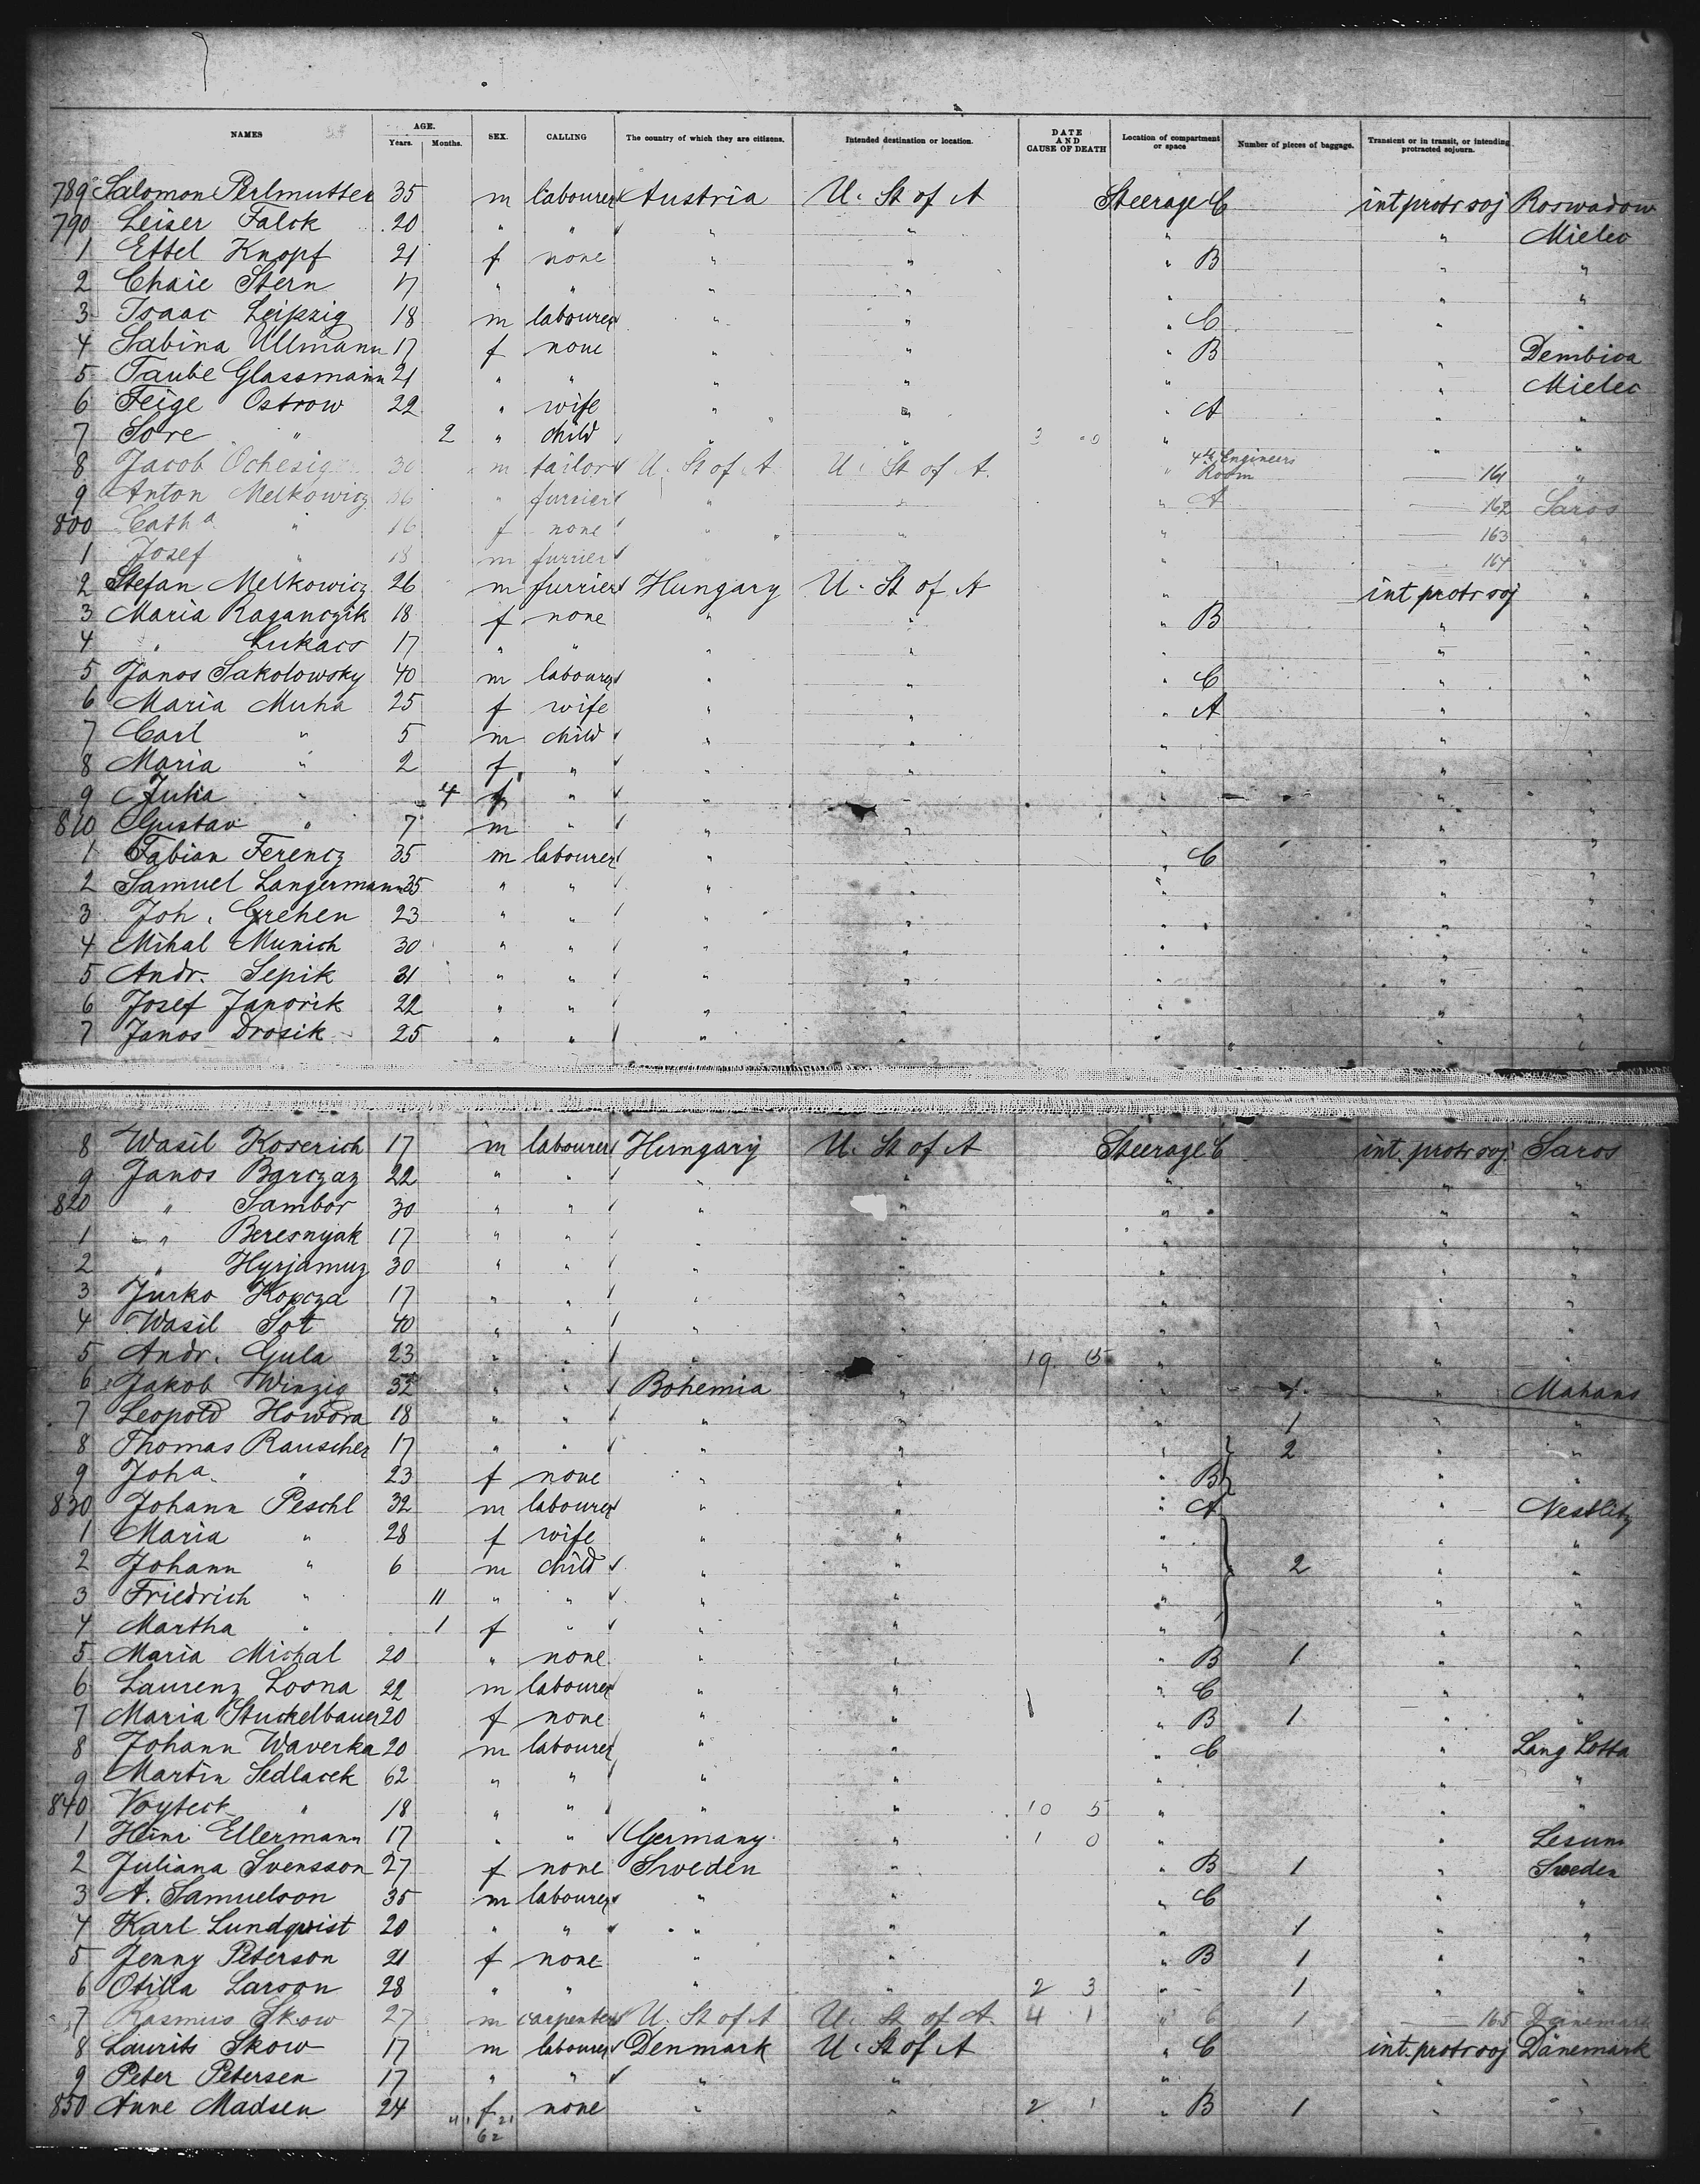 NAMES AGE. Years. Months. SEX. CALLING The country of which they are citizens. Intended destination or location. DATE AND CAUSE OF DEATH Location of compartment or space Number of pieces of baggage. Transient or in transit, or intending protracted sojourn.
789 Salomon Perlmutter 35 m labourer Austria U. St of A Steerage C int protr soj Roswadow
790 Leiser Falck 20 " " " " " " Mielec
1 Ettel Knopf 21 f none " " " B " "
2 Chaie Stern 17 " " " " " " "
3 Isaac Leipzig 18 m labourer " " " C " "
4 Sabina Ullmann 17 f none " " " B " Dembica
5 Taube Glassmann 21 " " " " " " Mielec
6 Feige Ostrow 22 " wife " " " A " "
7 Sore " 2 " child " " 3 0 " " "
8 Jacob 30 m tailor U. St of A U. St of A. " 4th Engineers Room 161 "
9 Anton Melkowicz 36 " furrier " " " A 162 Saros
800 Catha " 16 f none " " " 163 "
1 Josef " 18 m furrier " " " 164 "
2 Stefan Melkowicz 26 m furrier Hungary U. St of A " int protr soj "
3 Maria Raganczik 18 f none " " " B " "
4 " Lukacs 17 " " " " " " "
5 Janos Sakolowsky 40 m labourer " " " C " "
6 Maria Muha 25 f wife " " " A " "
7 Carl " 5 m child " " " " "
8 Maria " 2 f " " " " " "
9 Julia " 4 f " " " " " "
810 Gustav " 7 m " " " " " "
1 Fabian Ferencz 35 m labourer " " " C " "
2 Samuel Langermann 35 " " " " " " "
3 Joh. Grehen 23 " " " " " " "
4 Mihal Munich 30 " " " " " " "
5 Andr. Sepik 31 " " " " " " "
6 Josef Janorik 22 " " " " " " "
7 Janos Drosik 25 " " " " " " "
8 Wasil Koserich 17 m labourer Hungary U. St of A Steerage C int. protr soj. Saros
9 Janos Barczaz 22 " " " " " " "
820 " Sambor 30 " " " " " " "
1 " Beresnyak 17 " " " " " " "
2 " Hyrjamuz 30 " " " " " " "
3 Jurko Kopcza 17 " " " " " " "
4 Wasil Sot 40 " " " " " " "
5 Andr. Gula 23 " " " " 19 5 " " "
6 Jakob Winzig 32 " " Bohemia " " 1 " Mahans
7 Leopold Howora 18 " " " " " 1 " "
8 Thomas Rauscher 17 " " " " " 2 " "
9 Joha. " 23 f none " " " B " "
830 Johann Peschl 32 m labourer " " " A " Nestlitz
1 Maria " 28 f wife " " " " "
2 Johann " 6 m child " " " 2 " "
3 Friedrich " 11 " " " " " " "
4 Martha " 1 f " " " " " "
5 Maria Michal 20 " none " " " B 1 " "
6 Laurenz Losna 22 m labourer " " " C " "
7 Maria Stuckelbauer 20 f none " " " B 1 " "
8 Johann Waverka 20 m labourer " " " C " Lang Lotta
9 Martin Sedlacek 62 " " " " " " "
840 Voyteck " 18 " " " " 10 5 " " "
1 Heinr Ellermann 17 " " Germany " 1 0 " " Lesum
2 Juliana Svensson 27 f none Sweden " " B 1 " Sweden
3 A. Samuelson 35 m labourer " " " C " "
4 Karl Lundqvist 20 " " " " " 1 " "
5 Jenny Peterson 21 f none " " " B 1 " "
6 Otilla Larson 28 " " " " 2 3 " 1 " "
7 Rasmus Skow 27 m carpenter U. St of A U. St of A. 4 1 " C 1 165 Dänemark
8 Laurits Skow 17 m labourer Denmark U. St of A " C int. protr soj Dänemark
9 Peter Petersen 17 " " " " " " "
850 Anne Madsen 24 f none " " 2 1 " B 1 " "
41 21
62